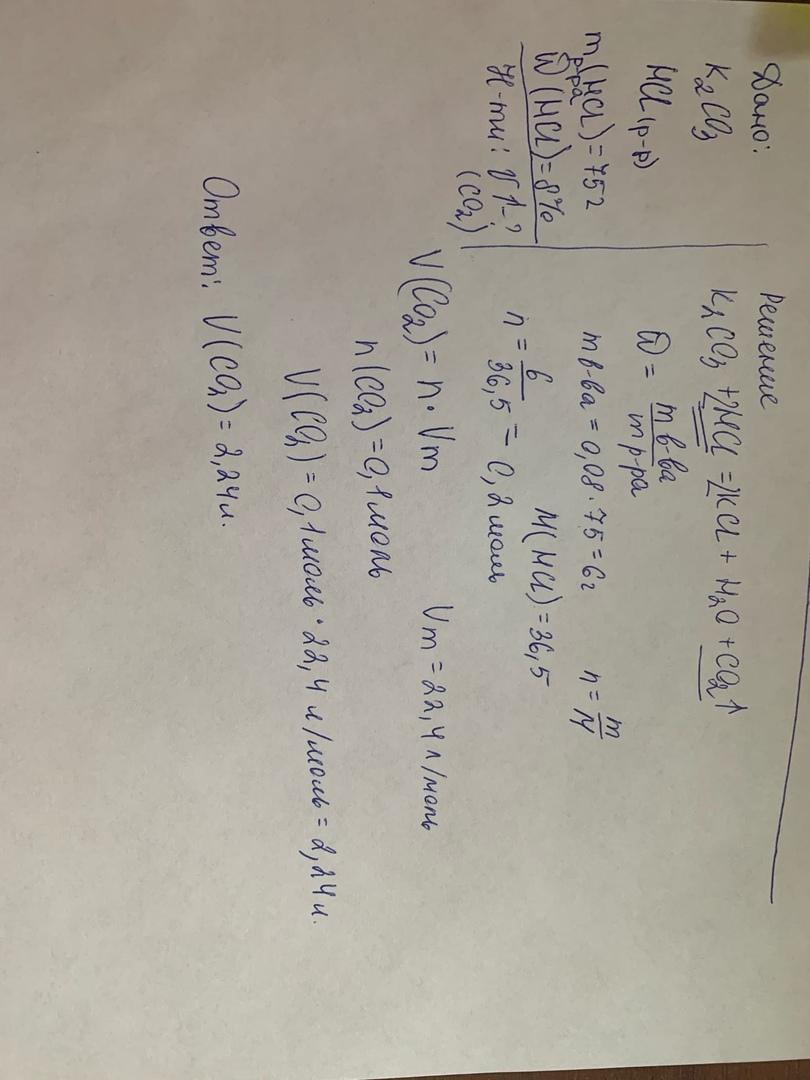 Дано:
K₂CO₃
HCl(р-р)
m(HCl) = 75г
р-ра
ω(HCl) = 8%
Н-ти: V↑-?
(CO₂)
Решение
K₂CO₃ + 2HCl = 2KCl + H₂O + CO₂↑
ω = m в-ва / m р-ра
m в-ва = 0,08 · 75 = 6г n = m/M
n = 6/36,5 = 0,2 моль M(HCl) = 36,5
V(CO₂) = n · Vm Vm = 22,4 л/моль
n(CO₂) = 0,1 моль
V(CO₂) = 0,1 моль · 22,4 л/моль = 2,24 л.
Ответ: V(CO₂) = 2,24 л.